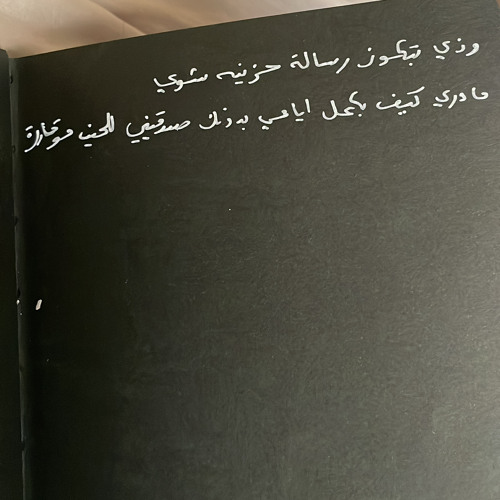 وذي بتكون رسالة حزينه شوي
مادري كيف بكمل ايامي بدونك صدقيني للحين مو قادرة